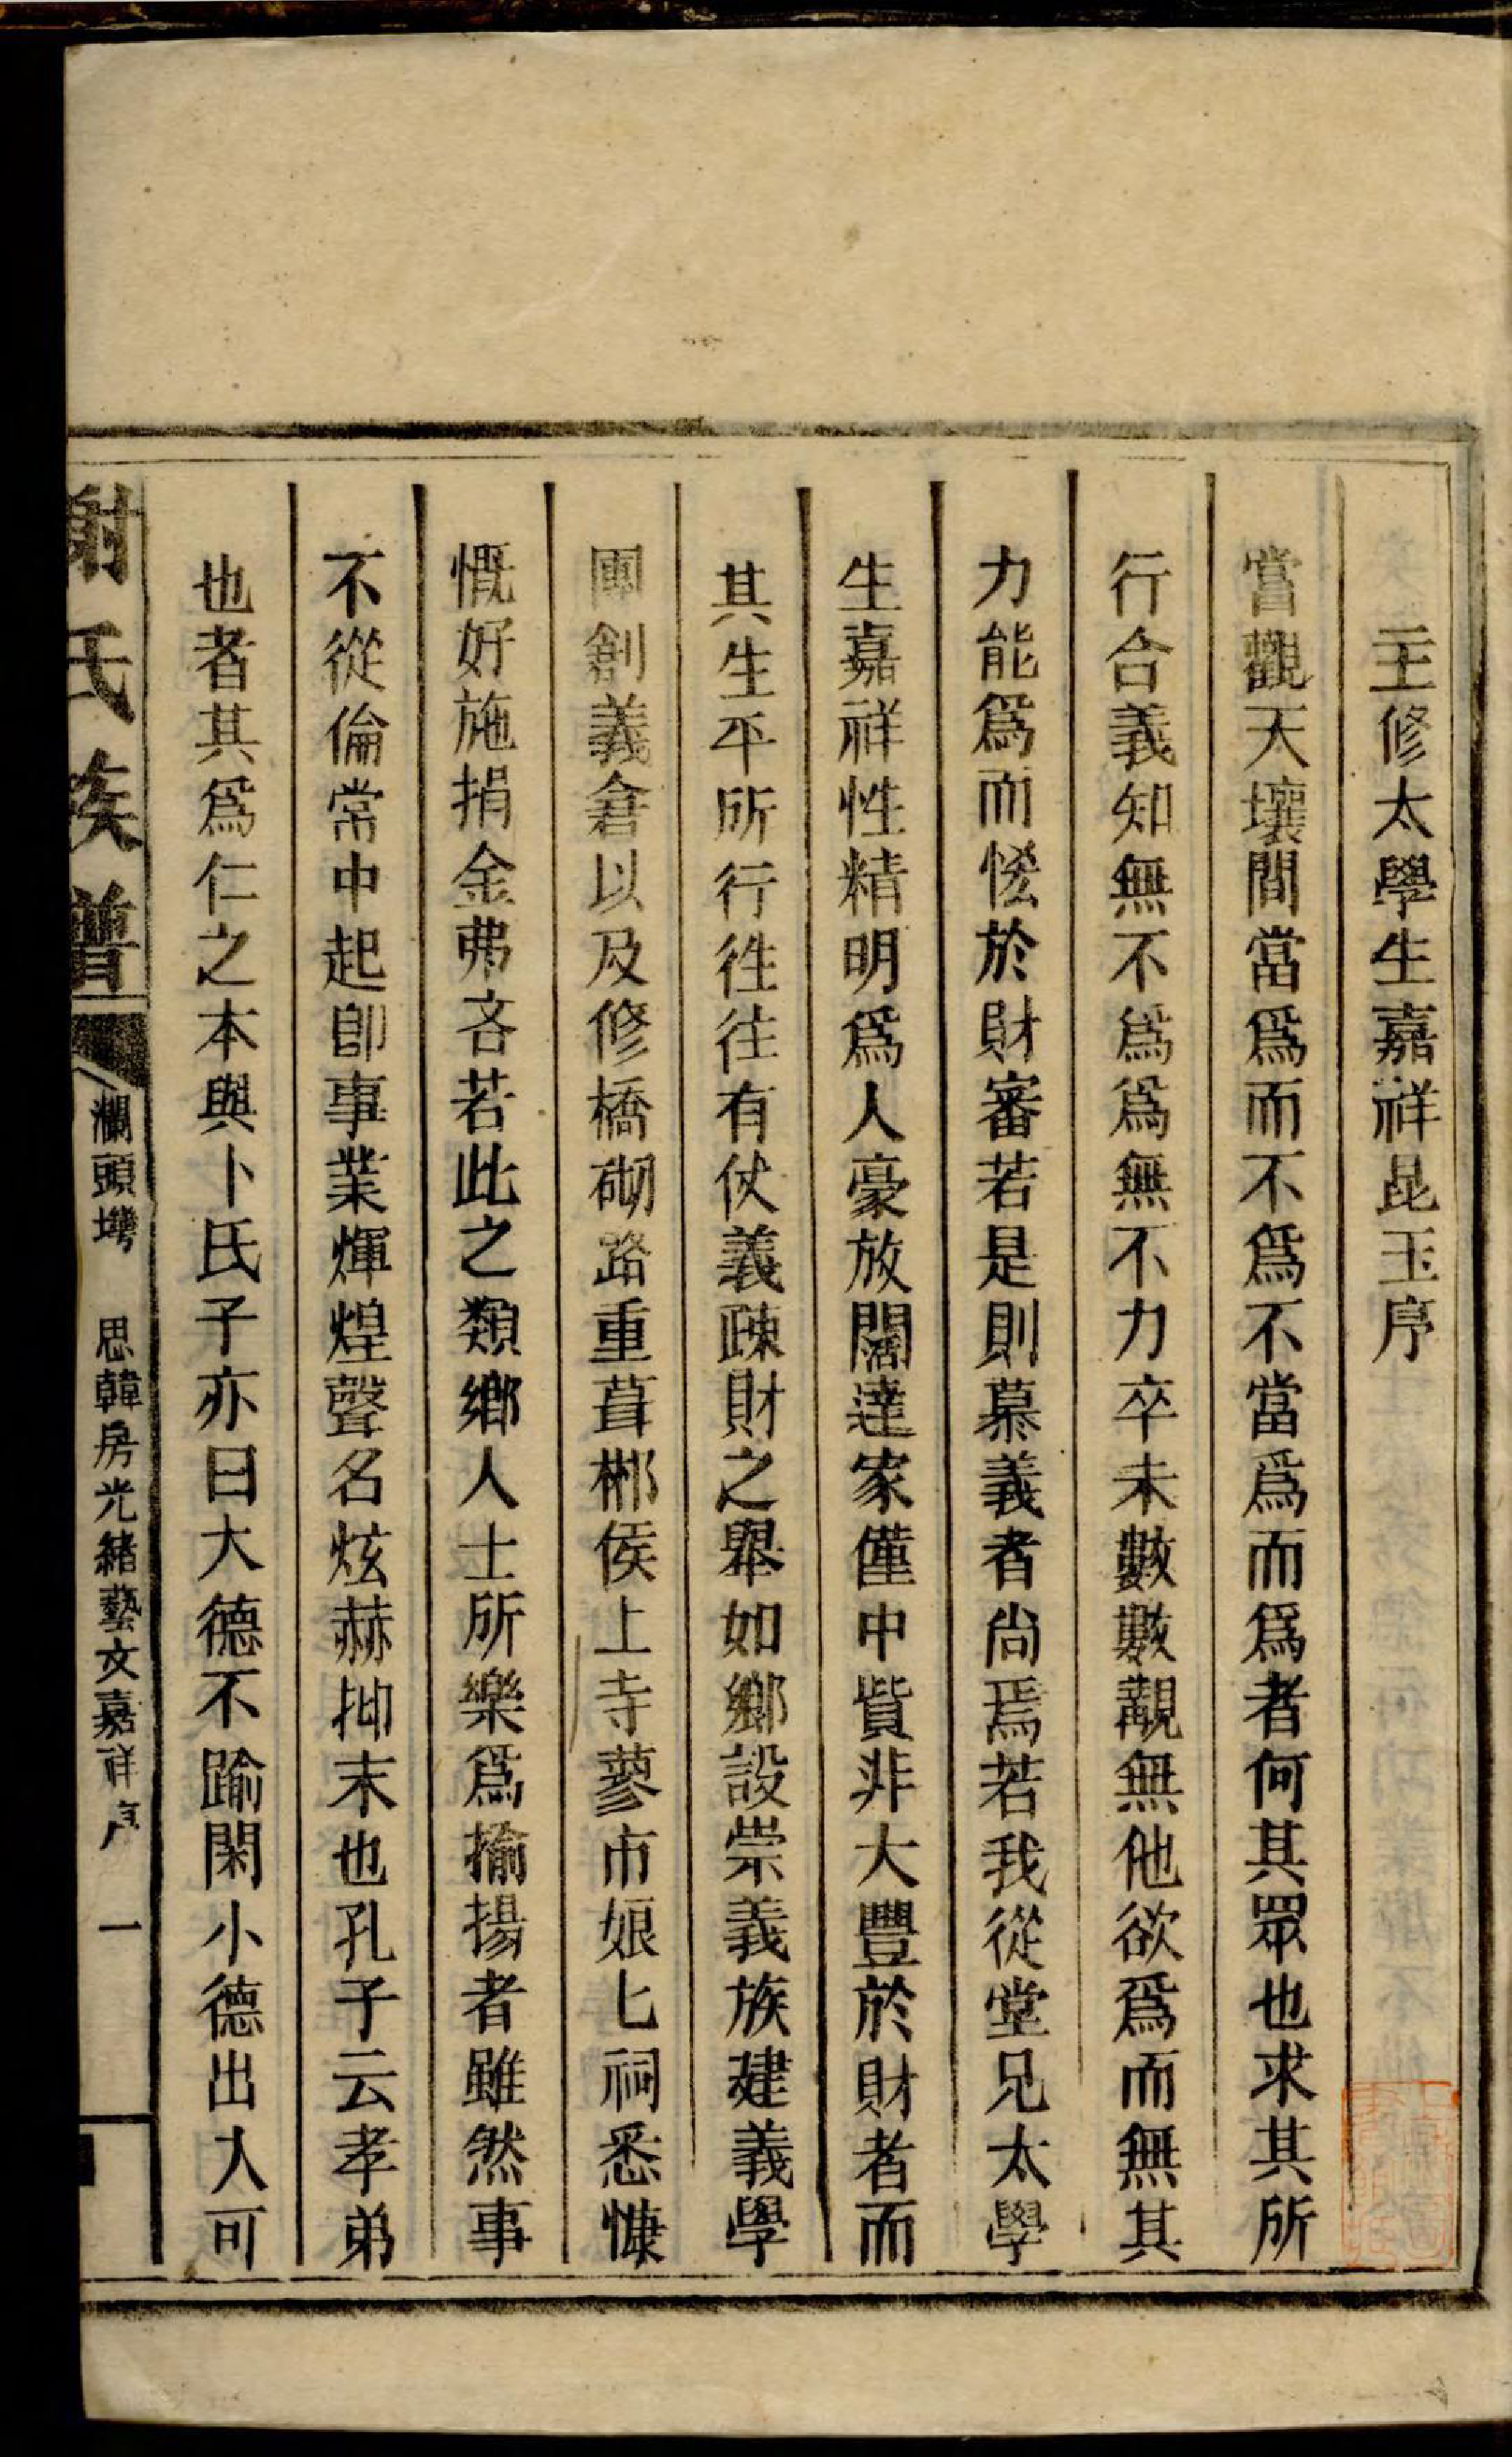 主修太學生嘉祥昆玉序
嘗觀天壤間當爲而不爲不當爲而爲者何其眾也求其所
行合義知無不爲爲無不力卒未數數覯無他欲爲而無其
力能爲而恡於財審若是則慕義者尚焉若我從堂兄太學
生嘉祥性精明爲人豪放闊達家僅中貲非大豐於財者而
其生平所行徃往有仗義疎財之舉如鄉設崇義族建義學
團創義倉以及修橋砌路重葺郴侯上寺蓼市娘匕祠悉慷
慨好施捐金弗吝若此之類鄉人士所樂爲揄揚者雖然事
不從倫常中起卽事業煇煌聲名炫赫抑末也孔子云孝弟
也者其爲仁之本與卜氏子亦曰大德不踰閑小德出入可
謝氏族譜
瀾頭塆　思韓房光緒藝文嘉祥序　一